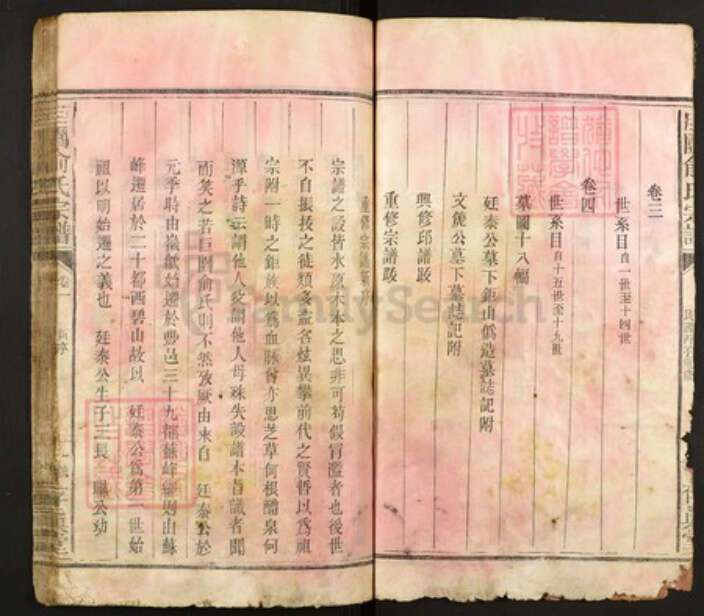 卷三
世系目 自一世至十四世
卷四
世系目 自十五世至十九世
墓圖十八幅
廷泰公墓下鉅山僞造墓誌記附
文僥公墓下墓誌記附
興修邱譜跋
重修宗譜跋
重修宗譜新序
宗譜之設皆水原木本之思非可苟假冒濫者也後世
不自振拔之徒類多盜名炫異攀前代之賢哲以爲祖
宗附一時之鉅族以爲血脉曾亦思芝草何根醴泉何
源乎詩云謂他人父謂他人母殊失設譜本旨識者聞
而矣之若巨關俞氏則不然攷厥由來自 廷泰公於
元季時由徽歙始遷於豐邑三十九都蘇峰 則由蘇
峰遷居於二十都西碧山故以 廷泰公爲第一世始
祖以明始遷之義也 廷泰公生子三長 聯公幼
俞氏宗譜 卷一 新序
FamilySearch